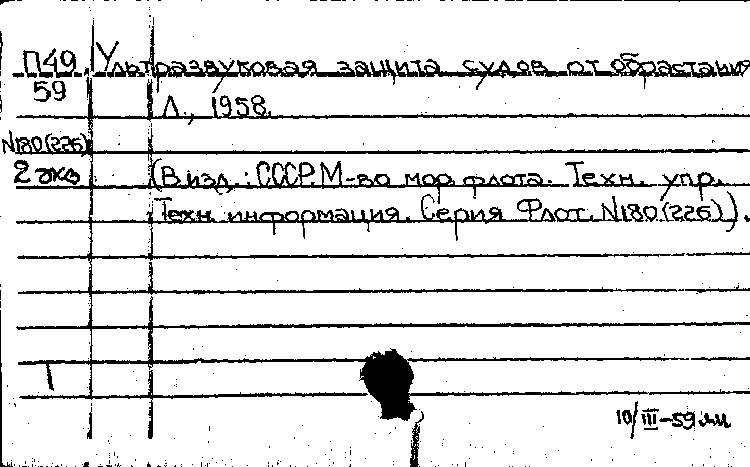 П49 Ультразвуковая защита судов от обрастания
59
Л., 1958.
N180(226)
2 экз (В изд.: СССР. М-во мор. флота. Техн. упр.
Техн. информация. Серия Флот. N180(226)).
10/III-59